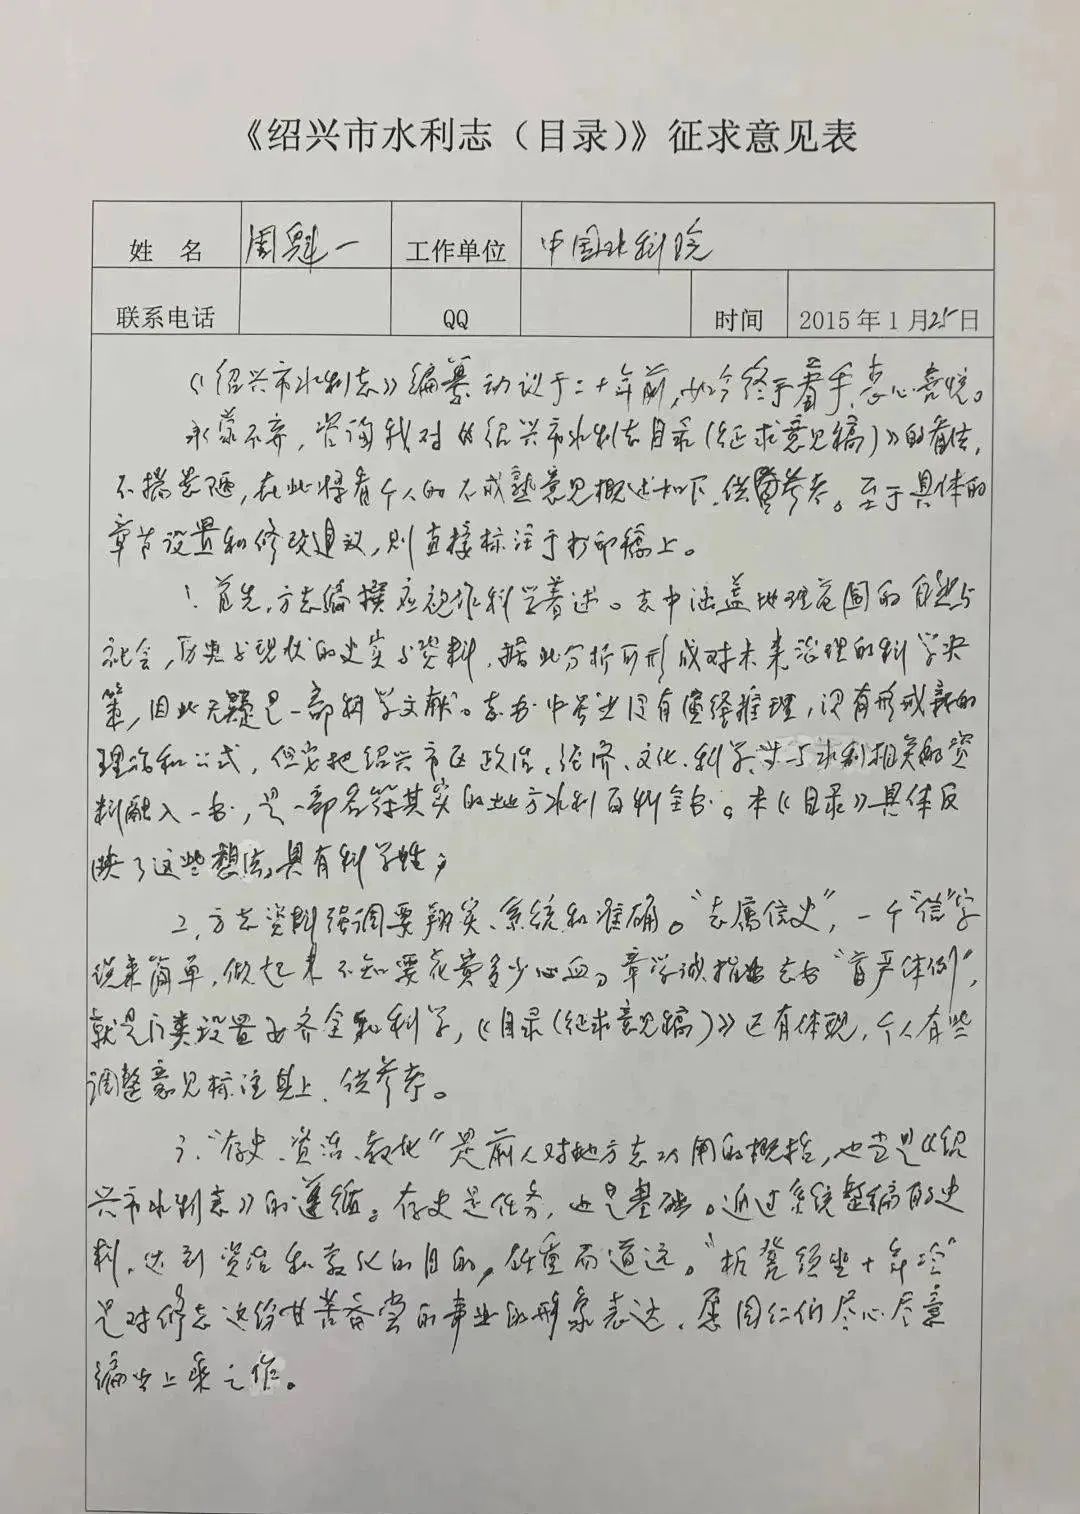 《绍兴市水利志（目录）》征求意见表
姓 名 周魁一 工作单位 中国水科院
联系电话 QQ 时间 2015年1月25日
《绍兴市水利志》编纂动议于二十年前，如今终于着手，衷心喜悦。
承蒙不弃，咨询我对《绍兴市水利志目录（征求意见稿）》的看法，
不揣浅陋，在此将有个人的不成熟意见概述如下，供参考。至于具体的
章节设置和修改建议，则直接标注于打印稿上。
1. 首先，方志编撰应视作科学著述。志中涵盖地理范围的自然与
社会，历史与现状的史实与资料，据此分析可形成对未来治理的科学决
策，因此无疑是一部科学文献。志书中虽没有演绎推理，没有形成新的
理论和公式，但它把绍兴市区政治、经济、文化、科学、与水利相关的资
料融入一书，是一部名符其实的地方水利百科全书。本《目录》具体反
映了这些想法，具有科学性。
2. 方志资料强调要翔实、系统和准确。“志属信史”，一个“信”字
说来简单，做起来不知要花费多少心血。章学诚指出志书“首严体例”，
就是门类设置要齐全和科学，《目录（征求意见稿）》已有体现，个人有些
调整意见标注其上，供参考。
3. “存史、资治、教化”是前人对地方志功用的概括，也当是《绍
兴市水利志》的遵循。存史是任务，也是基础。通过系统整编的史
料，达到资治和教化的目的，任重而道远。“板凳须坐十年冷”
是对修志这份甘苦备尝的事业的形象表达，愿同仁们尽心尽意
编出上乘之作。